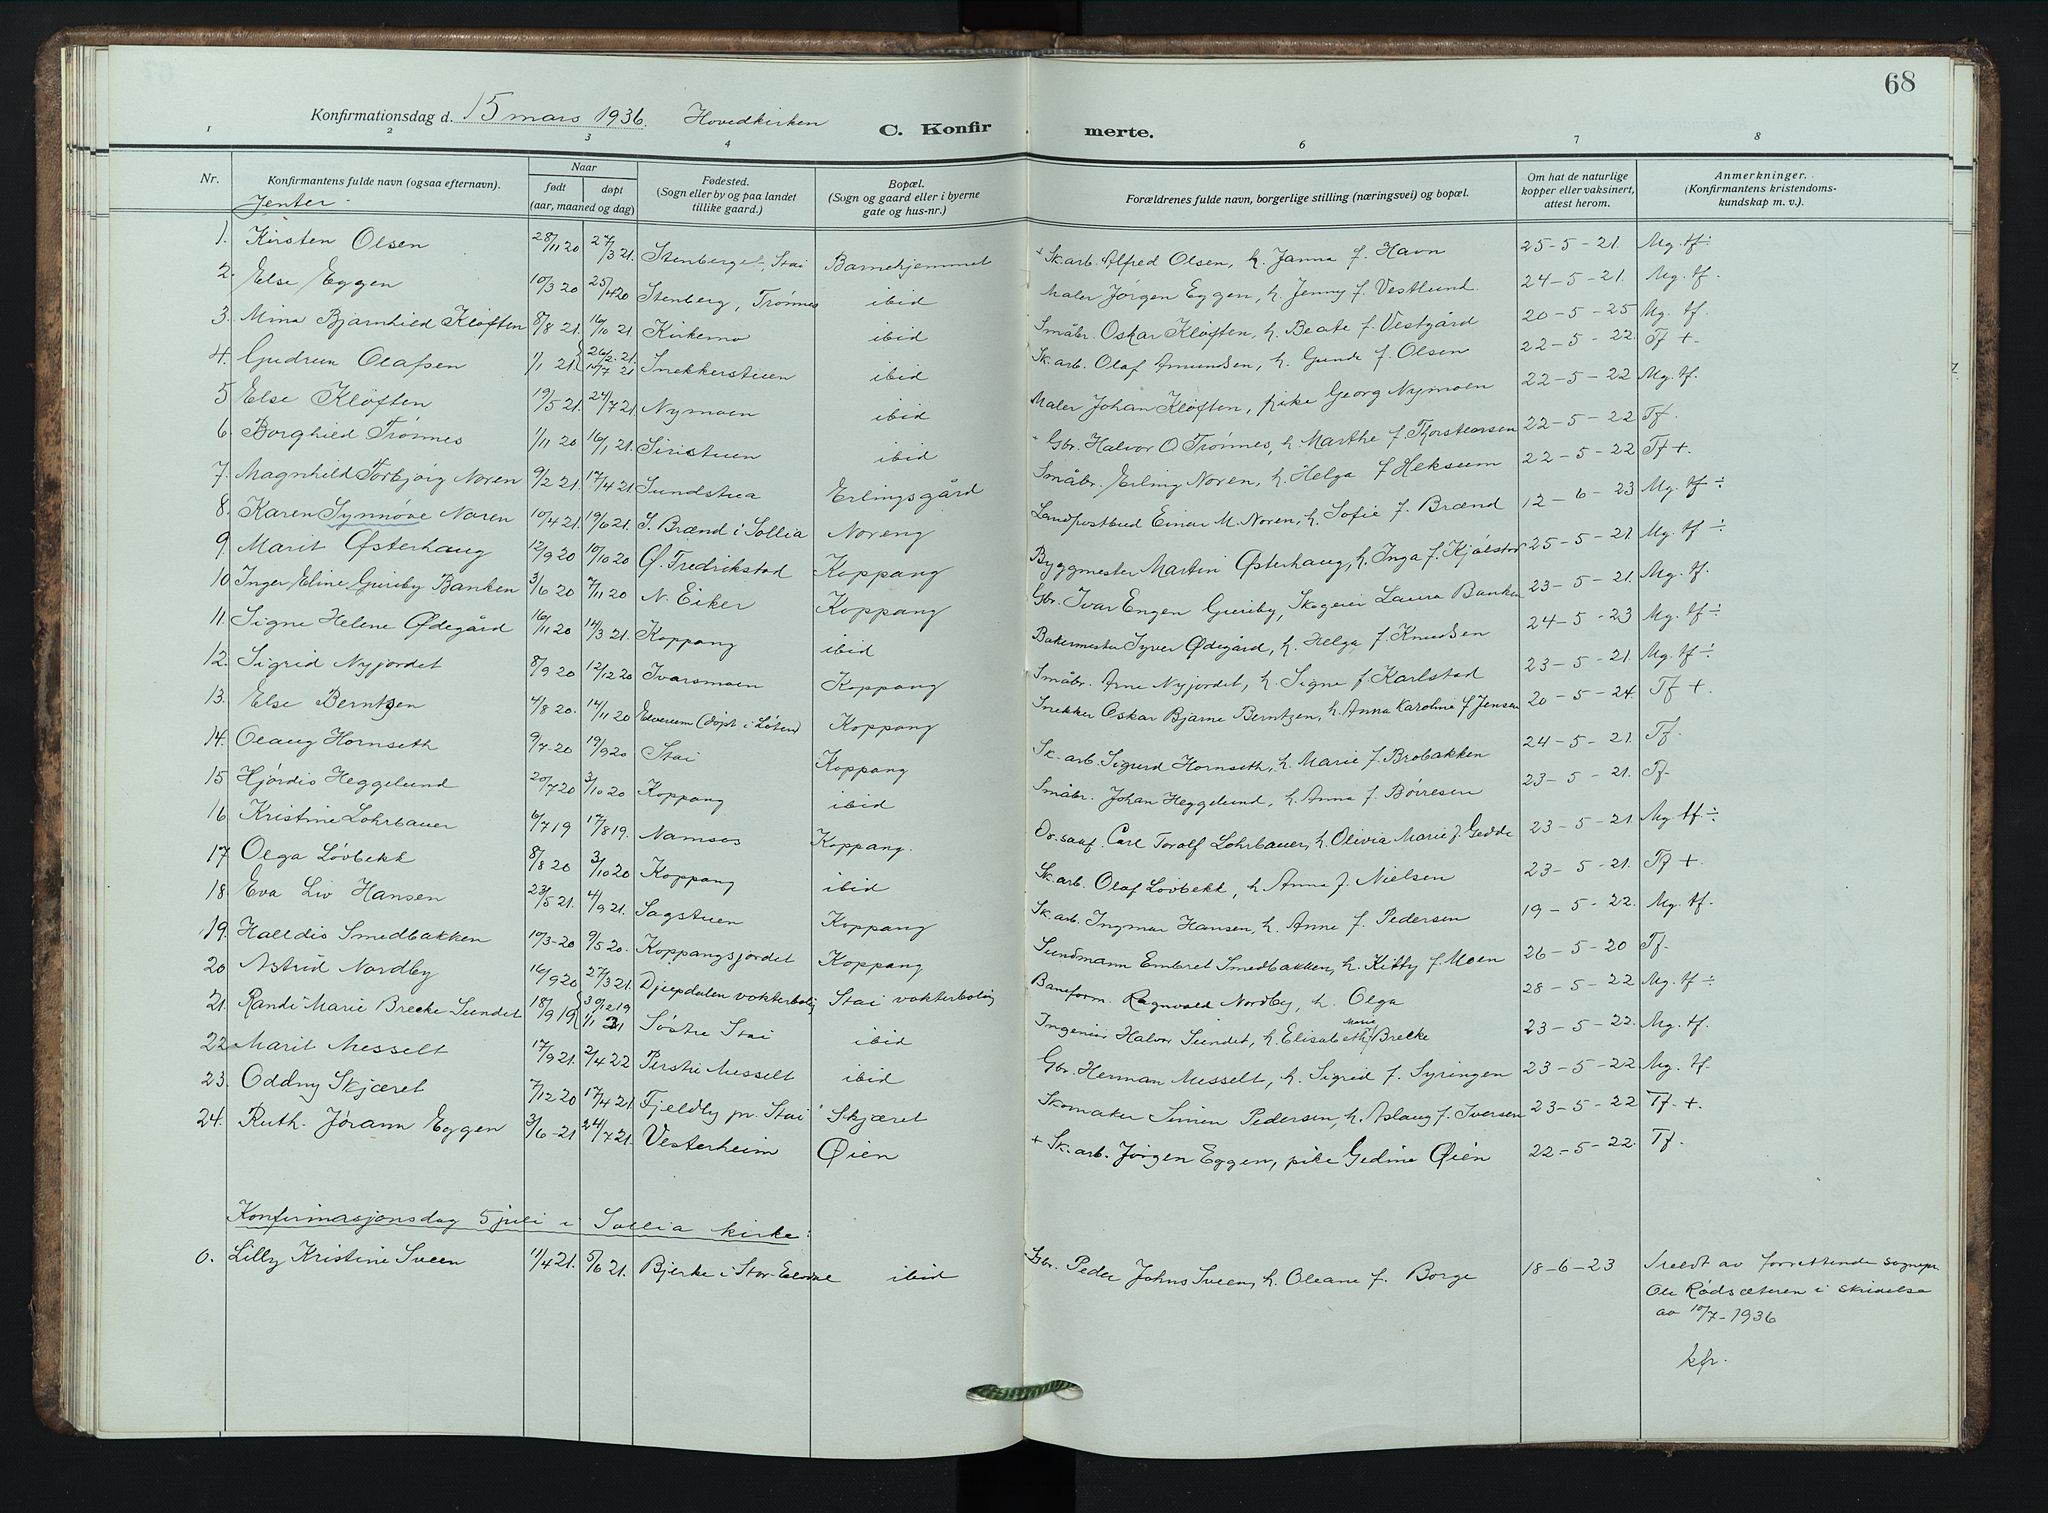 68
Konfirmationsdag d. 15 mars 1936. Hovedkirken
C. Konfirmerte.
1 2 3 4 6 7 8
Nr. Konfirmantens fulde navn (ogsaa efternavn). Naar født døpt (aar, maaned og dag) Fødested. (Sogn eller by og paa landet tillike gaard.) Bopæl. (Sogn og gaard eller i byerne gate og hus-nr.) Forældrenes fulde navn, borgerlige stilling (næringsvei) og bopæl. Om hat de naturlige kopper eller vaksinert, attest herom. Anmerkninger. (Konfirmantens kristendomskundskap m. v.).
Jenter.
1. Kirsten Olsen 28/11 20 27/3 21. Stenberget, Stai Barnehjemmet + Sk.arb. Alfred Olsen, h. Janna f. Havn 25-5-21. Mg. tf ÷
2. Else Eggen 10/3 20 25/4 20 Stenberg, Trønnes ibid Maler Jørgen Eggen, h. Jenny f. Vestlund. 24-5-21. Mg. tf.
3. Mina Bjarnhild Kløften 8/8 21. 16/10 21 Kirkemo ibid Småbr. Oskar Kløften, h. Beate f. Vestgård 20-5-25 Mg. tf.
4. Gudrun Olafsen 1/1 21 26/2 21. 10/7 21 Snekkerstuen ibid Sk. arb. Olaf Amundsen, h. Gunde f. Olsen 22-5-22. Tf +.
5 Else Kløften 19/5 21. 24/7 21 Nymoen ibid Maler Johan Kløften, pike Georg Nymoen 22-5-22 Mg. tf.
6. Borghild Trønnes 1/11 20 16/1 21. Siristuen ibid + Gbr. Halvor O. Trønnes, h. Marthe f. Thorstensen 22-5-22 Tf.
7. Magnhild Torbjørg Noren 9/2 21. 17/4 21 Sundstua Erlingsgård Småbr. Erling Noren, h. Helga f. Heksum 22-5-22 Tf +.
8. Karen Synnøve Noren 10/4 21. 19/6 21. S. Brænd i Sollia Noreng Landpostbud Einar M. Noren, h. Sofie f. Brænd 12-6-23 Mg. tf ÷
9. Marit Østerhaug 12/9 20 10/10 20 Ø. Fredrikstad Koppang Byggmester Martin Østerhaug, h. Inga f. Kjølstad 25-5-21. Mg. tf ÷
10. Inger Eline Guriby Banken 3/6 20 7/11 20 N. Eiker Koppang Gbr. Ivar Engen Guriby, Skogeier Laura Banken 23-5-21. Mg. tf.
11. Signe Helene Ødegård 16/11 20 14/3 21. Koppang ibid Bakermester Syver Ødegård, h. Helga f. Knudsen 24-5-23 Mg. tf ÷
12. Sigrid Nyjordet 8/9 20 12/12 20 Ivarsmoen Koppang Småbr. Arne Nyjordet, h. Signe f. Karlstad 23-5-21. Mg. tf ÷.
13. Else Berntzen 4/8 20. 14/11 20 Elverum (døpt i Løten) Koppang Snekker Oskar Bjarne Berntzen, h. Anna Karoline f. Jensen 20-5-24. Tf +.
14. Olaug Hornseth 9/7-20 19/9 20 Stai Koppang Sk. arb. Sigurd Hornseth, h. Marie f. Brobakken 24-5-21. Tf.
15 Hjørdis Heggelund 20/7 20 3/10 20 Koppang ibid Småbr. Johan Heggelund, h. Anna f. Børresen 23-5-21. Tf.
16 Kristine Lohrbauer 6/7 19 17/8 19. Namsos Koppang. O.r.sakf. Carl Toralf Lohrbauer, h. Olivia Marie f. Gedde 23-5-21. Mg tf ÷.
17. Olga Løvbekk 8/8 20 3/10 20 Koppang ibid Sk. arb. Olaf Løvbekk, h. Anna f. Nielsen 23-5-21. Tf +.
18. Eva Liv Hansen 23/5 21. 4/9 21. Sagstuen Koppang Sk. arb. Ingmar Hansen, h. Anne f. Pedersen 19-5-22. Mg. tf.
19. Halldis Smedbakken 10/3-20 9/5 20. Koppangsjordet Koppang Sundmann Embret Smedbakken, h. Kitty f. Moen 26-5-20 Tf.
20 Astrid Nordby 16/9 20 27/3 21. Djupdalen vokterbolig Stai vokterbolig Baneform. Ragnvald Nordby, h. Olga 28-5-22 Mg. tf ÷
21. Randi Marie Brecke Sundet 18/9 19 30/12 19 1/1 21 Søstu Stai ibid Ingeniør Halvor Sundet, h. Elisabeth Marie f. Brecke 23-5-22. Mg. tf.
22 Marit Messelt 17/9 21. 2/4 22 Perstu Messelt ibid Gbr. Herman Messelt, h. Sigrid f. Syringen 23-5-22 Mg. tf.
23. Oddny Skjæret 7/12 20 17/4 21. Fjeldby pr. Stai Skjæret Skomaker Simen Pedersen, h. Aslaug f. Iversen 23-5-22 Tf. +.
24. Ruth. Jørann Eggen 3/6-21 24/7 21. Vesterheim Øien + Sk. arb. Jørgen Eggen, pike Gedine Øien 22-5-22. Tf.
Konfirmasjonsdag 5 juli i Sollia kirke:
0. Lilly Kristine Sveen 11/4 21. 5/6 21. Bjerke i Stor-Elvdal ibid Gbr. Peder Johns Sveen, h. Oleane f. Borge 18-6-23 Meldt av forrettende sognepr.
Ole Rødsæteren i skrivelse
av 10/7-1936
kfr.